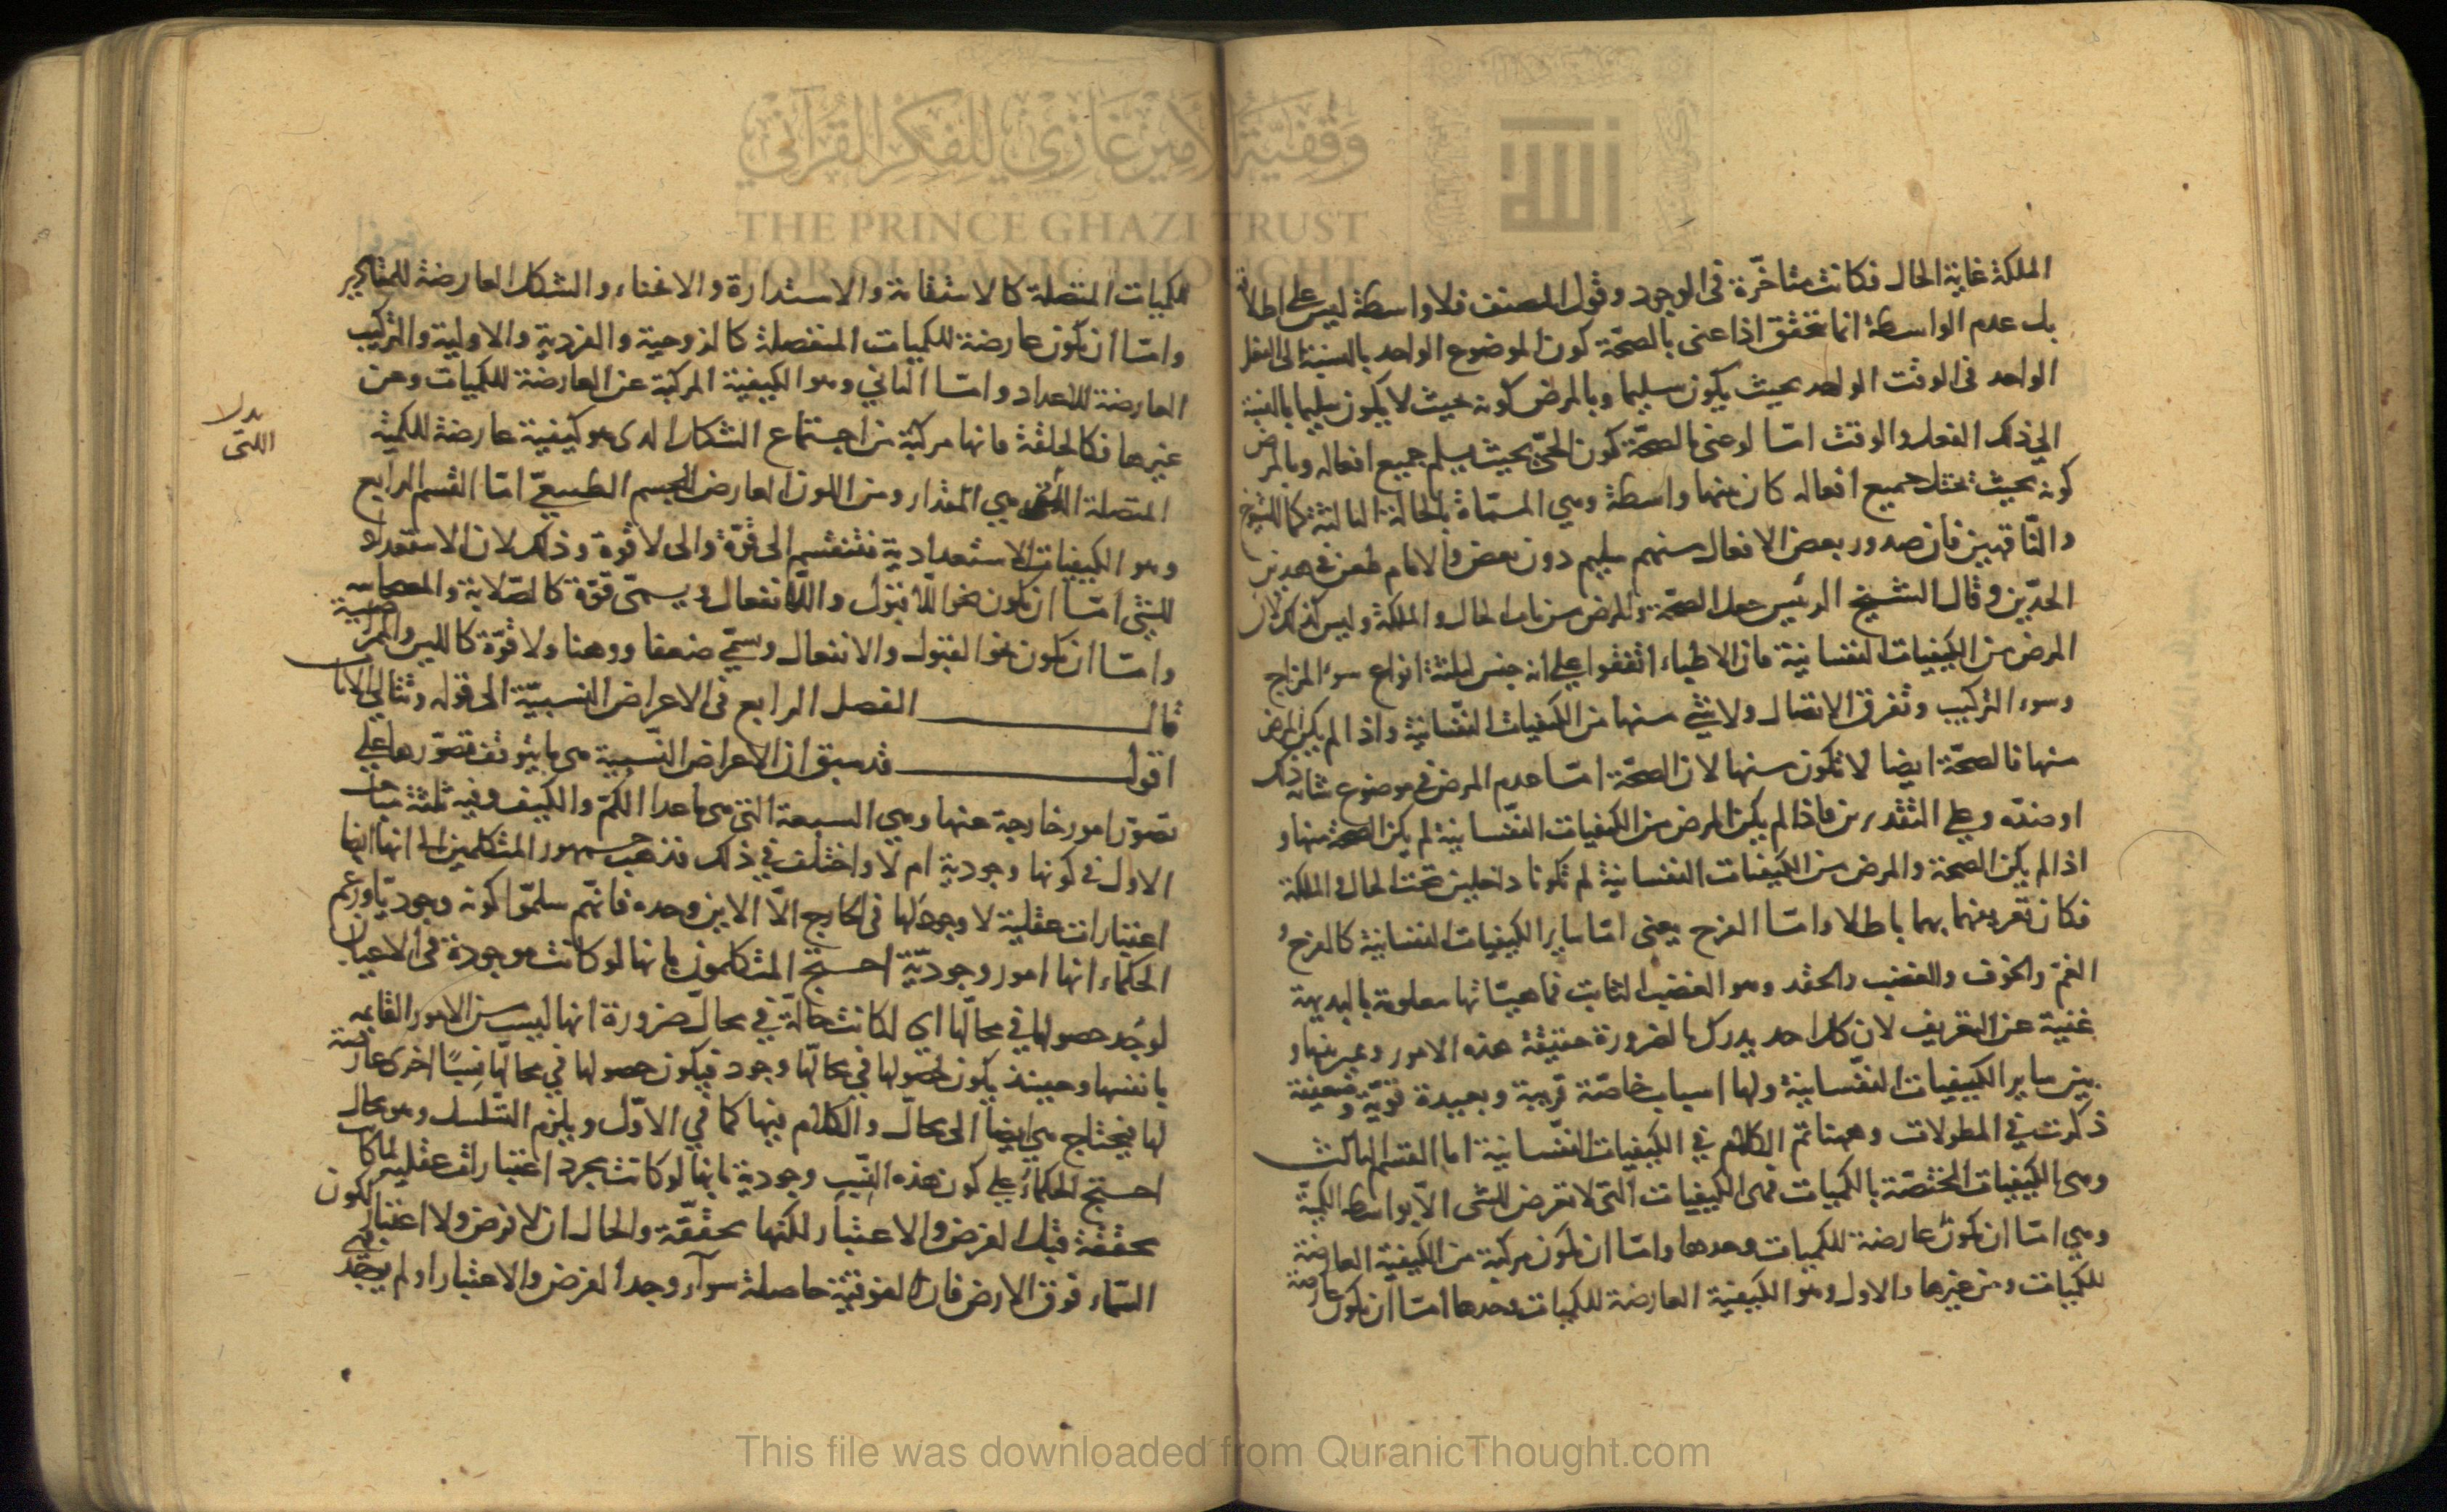 الملكة غاية الحال فكانت متأخّرة فى الوجود وقول المصنف فلا واسطة ليس على اطلاقه
بل عدم الواسطة انما تحقق اذا عنى بالصحّة كون الموضوع الواحد بالنسبة الى الفعل
الواحد فى الوقت الواحد بحيث يكون سليما وبالمرض كونه بحيث لا يكون سليما بالنسبة
الى ذلك الفعل والوقت امّا لو عنى بالصحّة كون الحىّ بحيث يسلم جميع افعاله وبالمرض
كونه بحيث تختل جميع افعاله كان بينهما واسطة وهي المسمّاة بالحالة الثالثة كما للشيوخ
والنّاقهين فان صدور بعض الافعال منهم سليم دون بعض والامام طعن في هذين
الحدّين وقال الشيخ الرئيس جعل الصحّة والمرض من باب الحال والملكة وليس كذلك لان
المرض من الكيفيات النفسانية فان الاطباء اتفقوا على انه جنس لثلثة انواع سوء المزاج
وسوء التركيب وتفرق الاتصال ولا شئ منها من الكيفيات النّفسانية واذا لم يكن المرض
منها فالصحّة ايضا لا تكون منها لان الصحّة امّا عدم المرض في موضوع شانه ذلك
او ضدّه وعلى التقديرين فاذا لم يكن المرض من الكيفيات النّفسانية لم يكن الصحة منها و
اذا لم يكن الصحة والمرض من الكيفيات النفسانية لم تكونا داخلين تحت الحال والملكة
فكان تعريفهما بهما باطلا وامّا الفرح يعنى امّا ساير الكيفيات النفسانية كالفرح و
الغمّ والخوف والغضب والحقد وهو الغضب الثابت فماهيّاتها معلومة بالبديهة
غنية عن التعريف لان كل احد يدرك بالضرورة حقيقة هذه الامور ويميز بينها و
بين ساير الكيفيات النفّسانية ولها اسباب خاصّة قريبة وبعيدة قويّة وضعيفة
ذكرت في المطولات وههنا تم الكلام في الكيفيات النفّسانية اما القسم الثالث
وهى الكيفيات المختصّة بالكميات فهى الكيفيات التى لا تعرض للشى الّا بواسطة الكميّة
وهي امّا ان تكون عارضة للكميات وحدها وامّا ان تكون مركبة من الكيفية العارضة
للكميات ومن غيرها والاول وهو الكيفية العارضة للكميات وحدها امّا ان تكون عارضة
للكميات المتصلة كالاستقامة والاستدارة والانحناء والشكل العارضة للمقادير
وامّا ان تكون عارضة للكميات المنفصلة كالزوجية والفردية والاولية والتركيب
العارضة للاعداد وامّا الثاني وهو الكيفية المركبة عن العارضة للكميات وعن
غيرها فكالخلقة فانها مركبّة من اجتماع الشكل الذى هو كيفية عارضة للكميّة
المتصلة التى هي المقدار ومن اللون العارض للجسم الطبيعيّ امّا القسم الرابع
وهو الكيفيات الاستعدادية فتنقسم الى قوّة والى لا قوة وذلك لان الاستعداد
للشئ امّا ان يكون نحو اللّا قبول واللّا انفعال ويسمّى قوّة كالصّلابة والمصحاحية
وامّا ان يكون نحو القبول والانفعال ويسمّي ضعفا ووهنا ولا قوّة كاللين والممراضية
قال الفصل الرابع فى الاعراض النسبيّة الى قوله وتتالى الآنات
اقول قد سبق ان الاعراض النّسبية هى ما يتوقف تصوّرها على
تصوّر امور خارجة عنها وهي السبعة التى هى ما عدا الكمّ والكيف وفيه ثلثة مباحث
الاول في كونها وجودية ام لا واختلف في ذلك فذهب جمهور المتكلمين الى انها ايضا
اعتبارات عقلية لا وجود لها فى الخارج الّا الاين وحده فانّهم سلمّوا كونه وجوديّا وزعم
الحكماء انها امور وجوديّة احتج المتكلمون بانها لو كانت موجودة فى الاعيان
لوجد حصولها في محالّها اى لكانت حالّة في محالّ ضرورة انها ليست من الامور القايمة
بانفسها وحينئذ يكون لحصولها في محالّها وجود فيكون حصولها في محالّها نسبًا اخرى عارضة
لها فيحتاج هي ايضا الى محالّ والكلام فيها كما في الاوّل ويلزم التّسلسل وهو محال
احتج الحكماء على كون هذه النّسب وجودية بانها لو كانت مجرد اعتبارات عقلية لما كانت
محققة قبل الفرض والاعتبار لكنها محققّة والحال ان لا فرض ولا اعتبار لكون
السّماء فوق الارض فان الفوقيّة حاصلة سوآء وجد الفرض والاعتبار او لم يوجد
بدل
اللتى
وقفية الأمير غازي للفكر القرآني
THE PRINCE GHAZI TRUST
FOR QUR'ANIC THOUGHT
This file was downloaded from QuranicThought.com